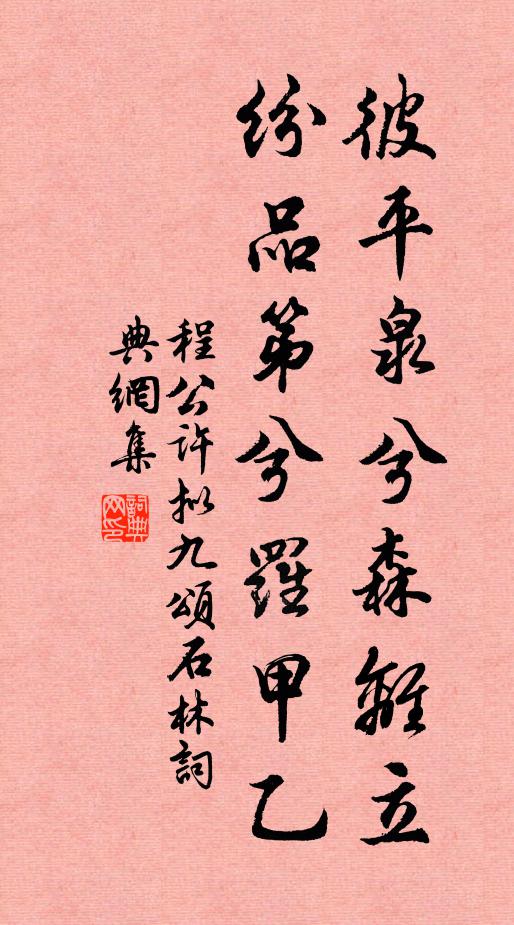 彼平泉兮森離立
紛品第兮羅甲乙
程公許拟九頌石林詞
典網集
詞典网印